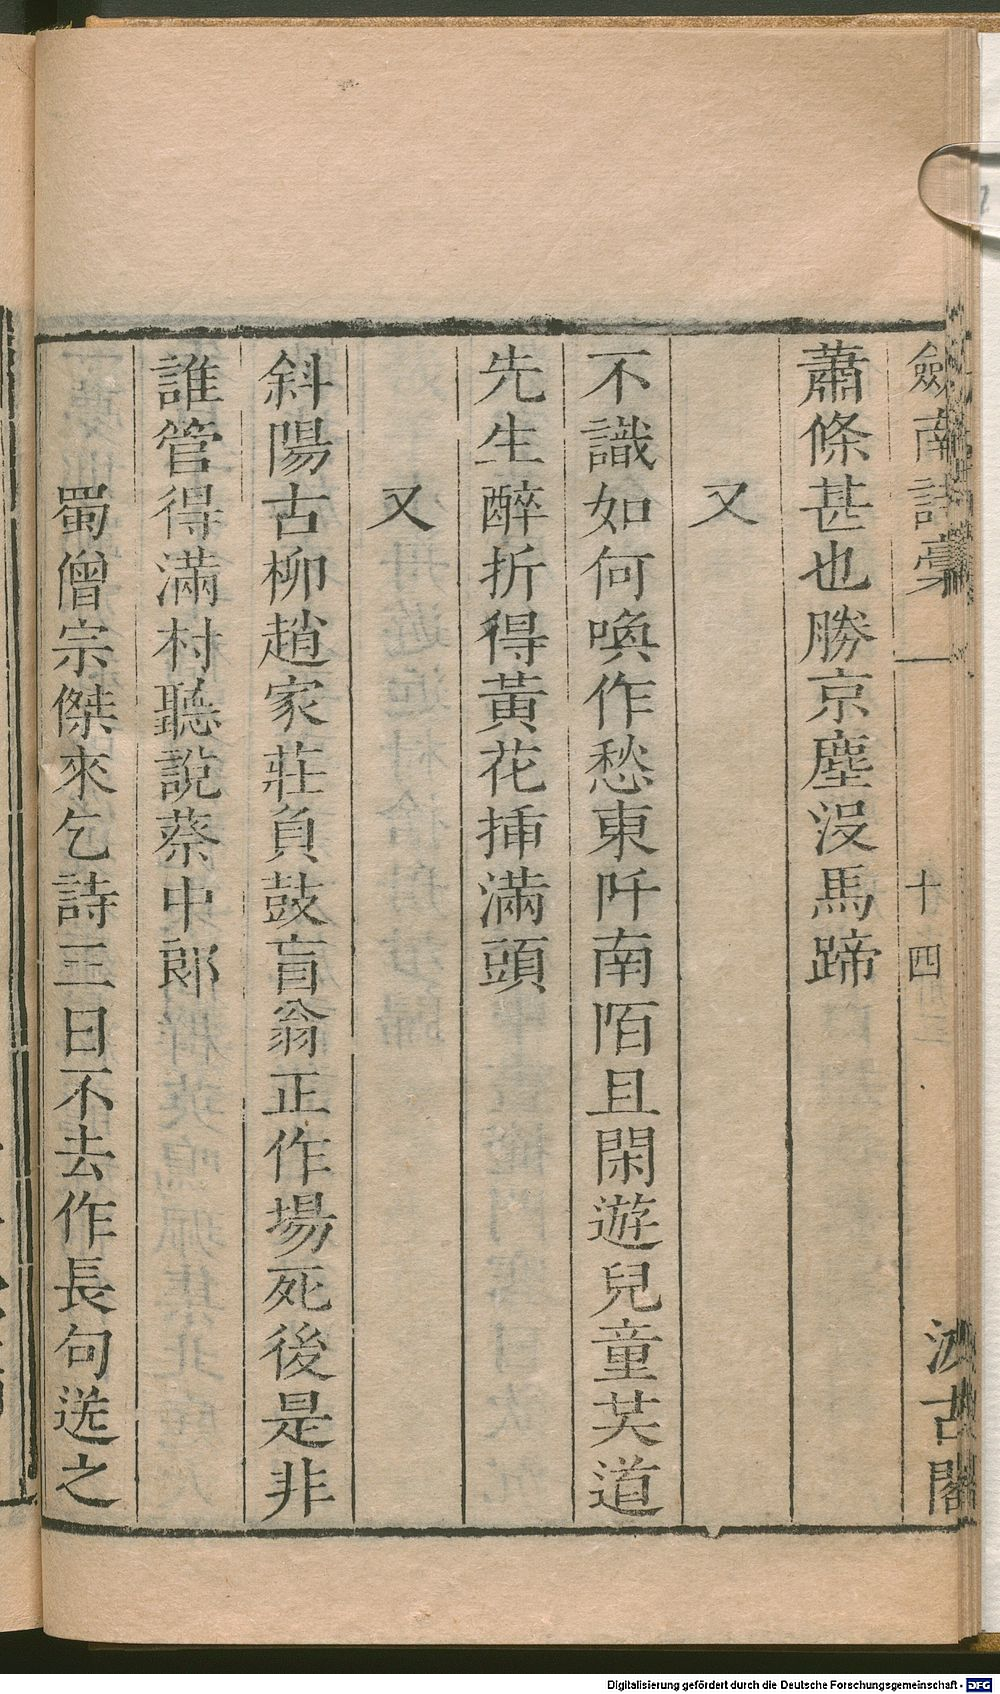 劍南詩稾 十四 汲古閣
蕭條甚也勝京塵沒馬蹄
又
不識如何喚作愁東阡南陌且閑遊兒童共道
先生醉折得黃花揷滿頭
又
斜陽古柳趙家莊負鼓盲翁正作場死後是非
誰管得滿村聽說蔡中郎
蜀僧宗傑來乞詩三日不去作長句送之
Digitalisierung gefördert durch die Deutsche Forschungsgemeinschaft - DFG